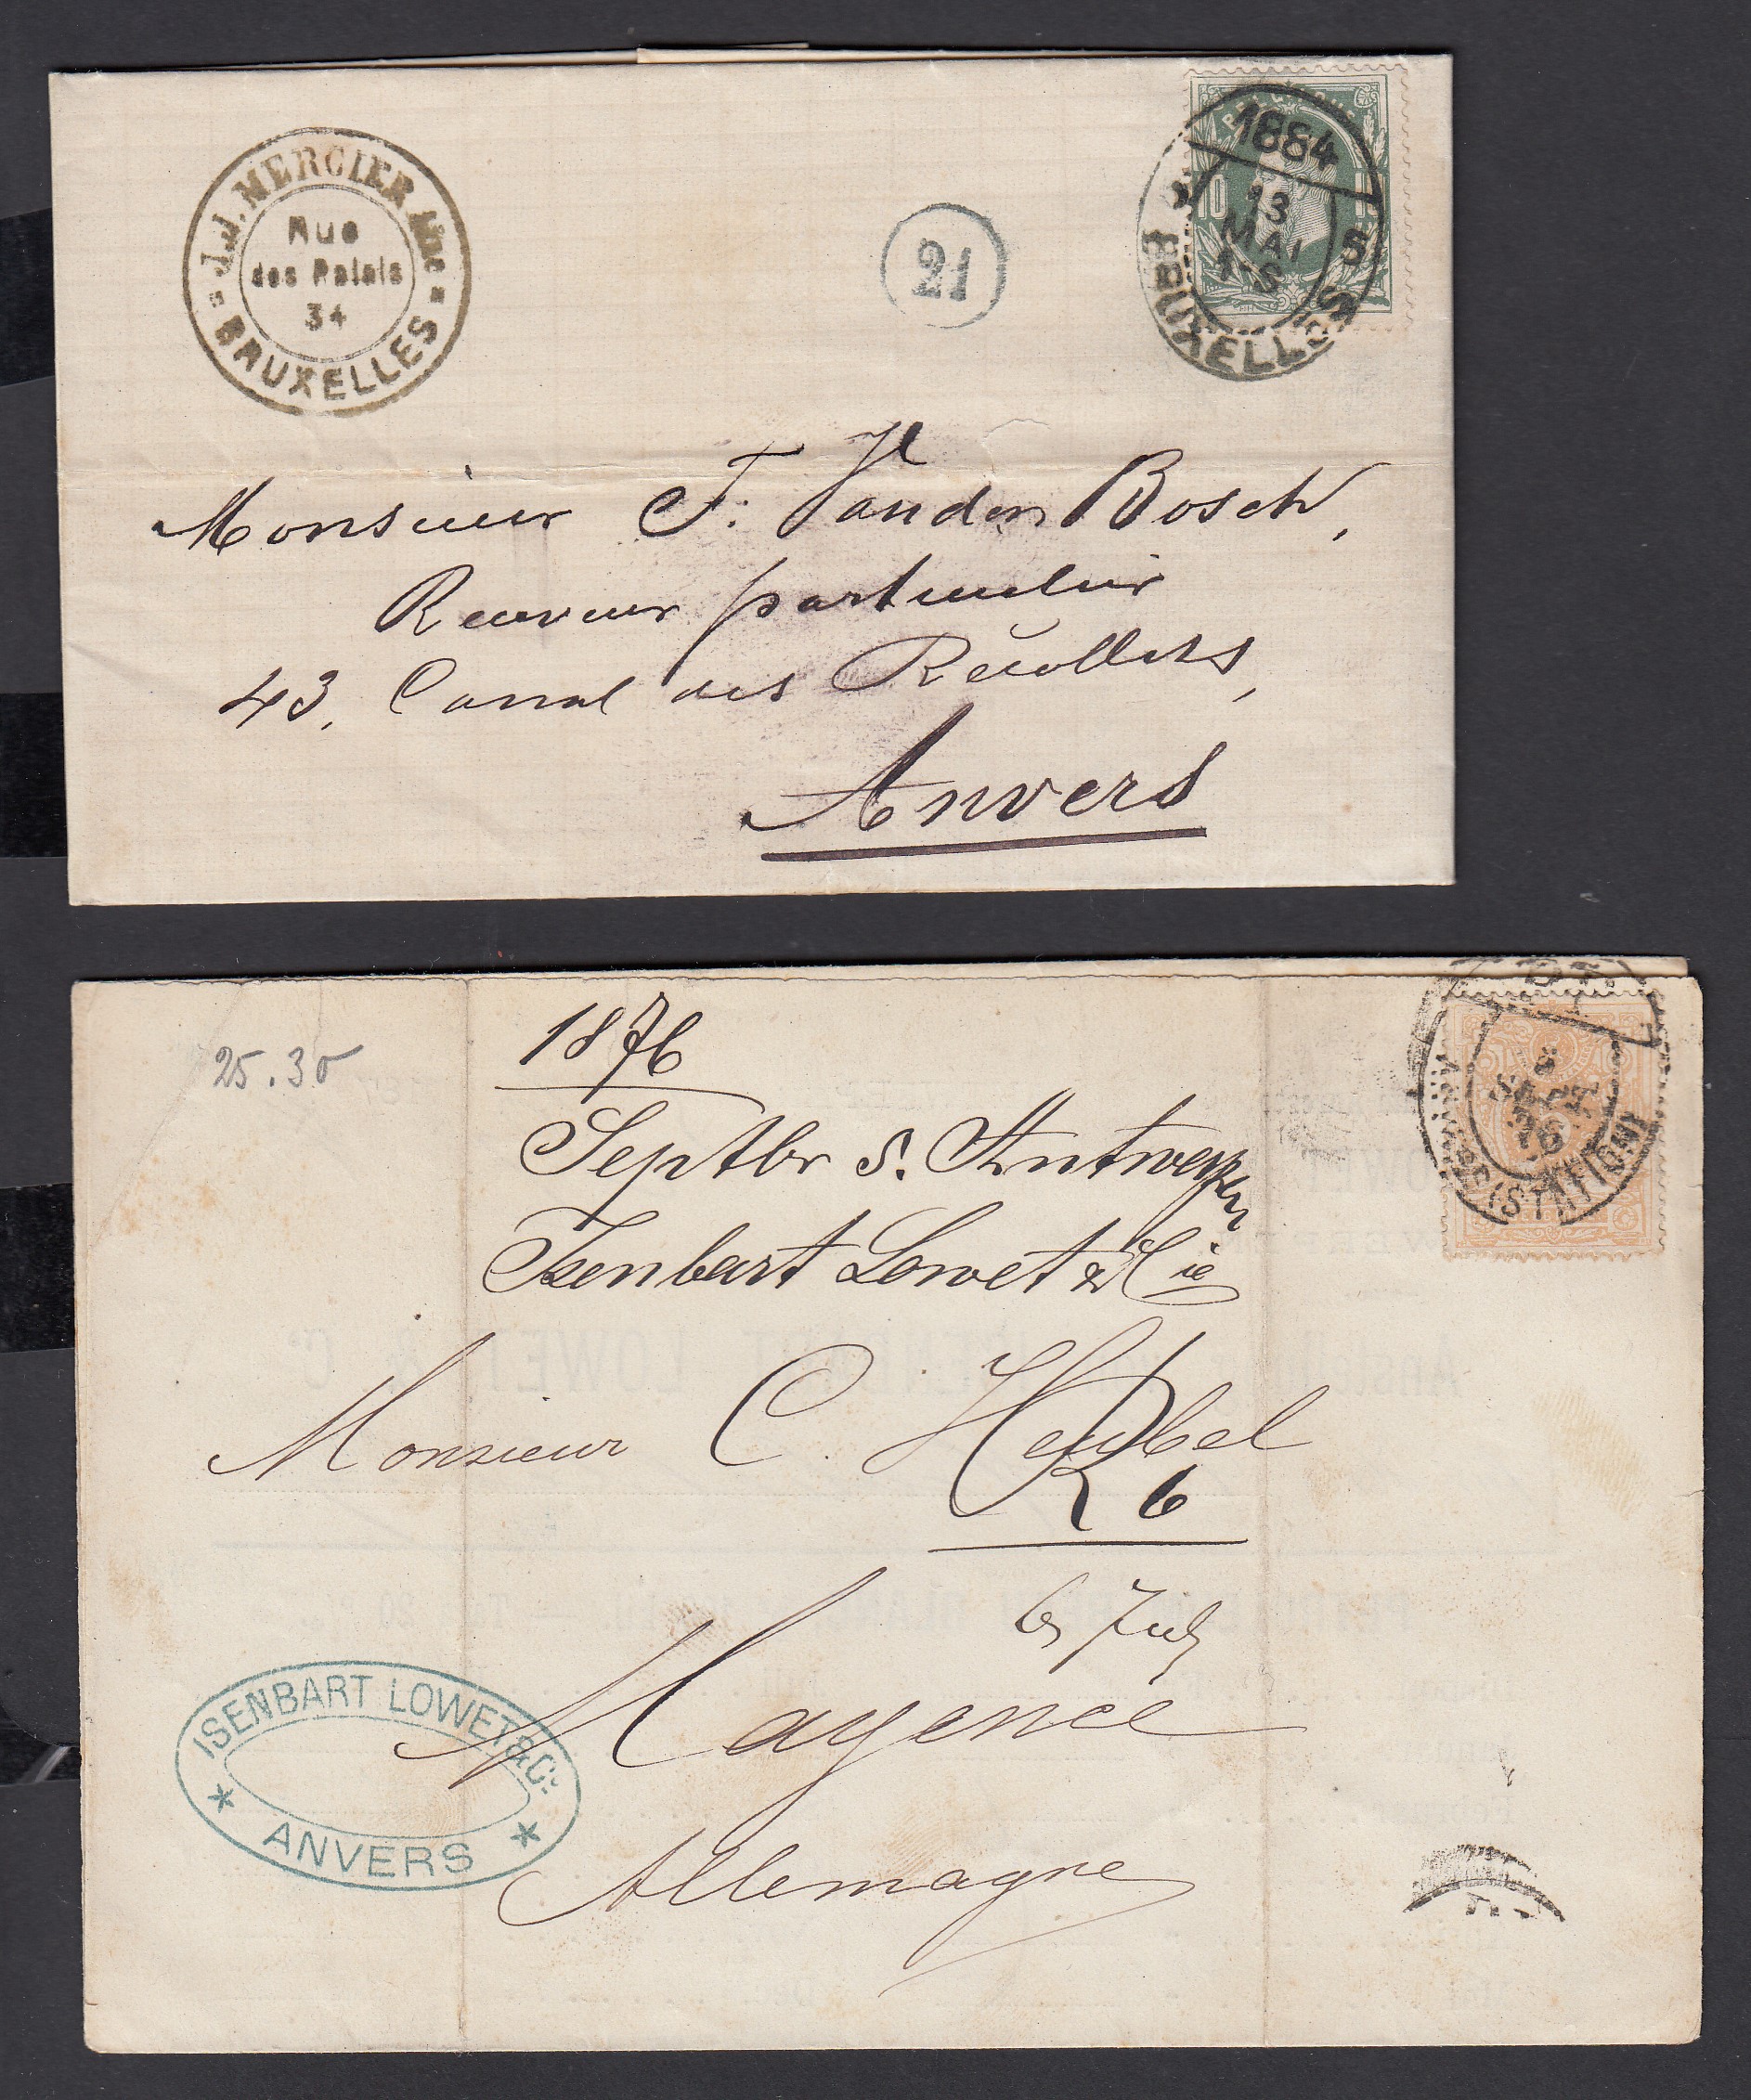 J.J. MERCIER Aîné
Rue
des Palais
34
BRUXELLES
21
10
1884
13
MAI
1-S
5
BRUXELLES
Monsieur F. Vanden Bosch,
Receveur particulier
43, Canal des Récollets,
Anvers
25.30
1876
Septbr 8. Antwerpen
Isenbart Lowet & Cie
8
SEPT
76
ANVERS (STATION)
Monsieur C. Heubel
R 6
Mayence
Allemagne
ISENBART LOWET & Cie
ANVERS